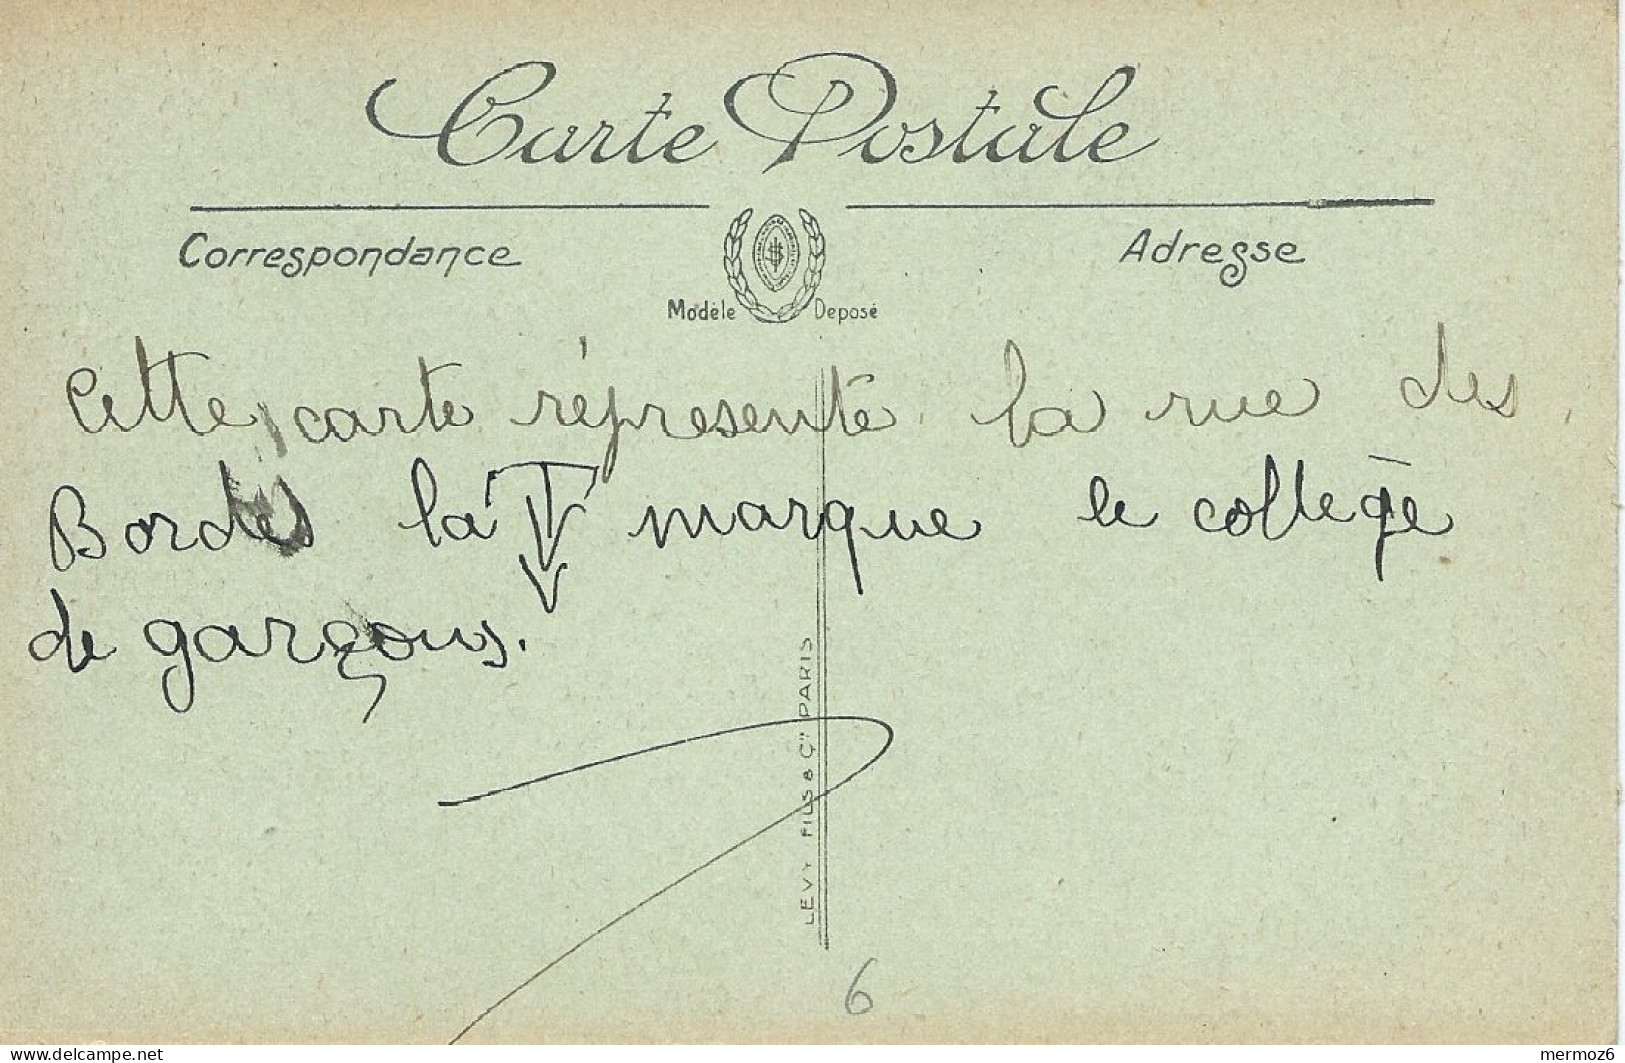 Carte Postale
Correspondance
Adresse
Modèle Déposé
Cette carte réprésente la rue des
Bordes la marque le collège
de garçons.
LEVY FILS & Cie PARIS
6
delcampe.net
mermoz6